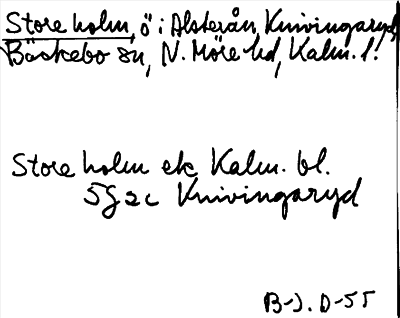 Store holm, ö i Alsterån, Knivingaryd,
Bäckebo sn, N. Möre hd, Kalm. l.
Store holm ek Kalm. bl.
5G 2c Knivingaryd
B-J. D-55